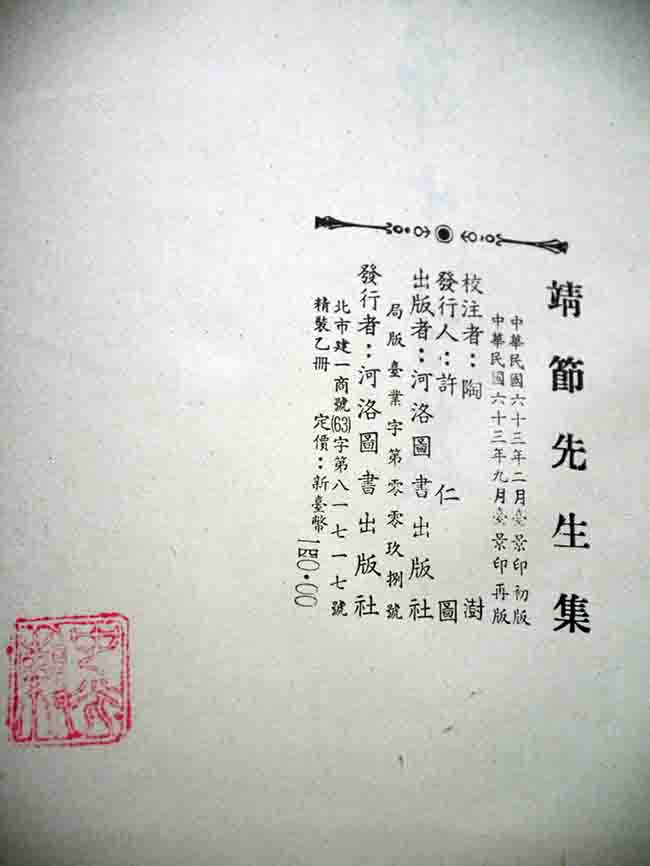 靖節先生集
中華民國六十三年二月臺景印初版
中華民國六十三年九月臺景印再版
校注者：陶澍
發行人：許仁圖
出版者：河洛圖書出版社
局版臺業字第零零玖捌號
發行者：河洛圖書出版社
北市建一商號(63)字第八一七一七號
精裝乙冊 定價：新臺幣一四〇.〇〇